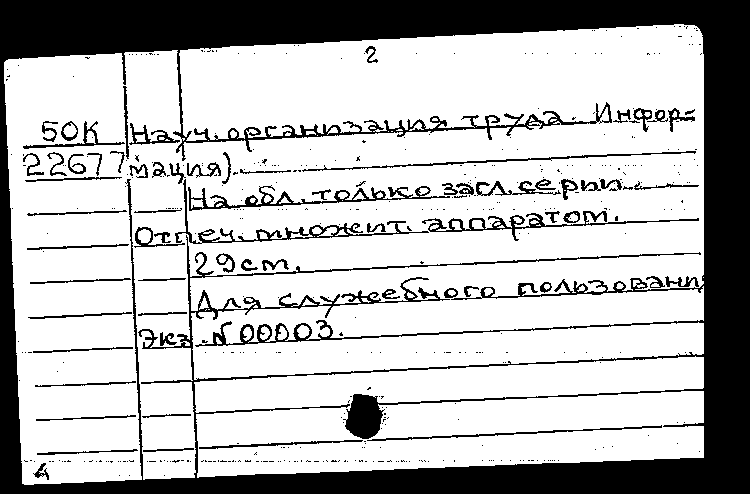 2
50К Науч. организация труда. Инфор=
22677 мация).
На обл. только загл. серии.
Отпеч. множит. аппаратом.
29 см.
Для служебного пользования
Экз. № 00003.
4